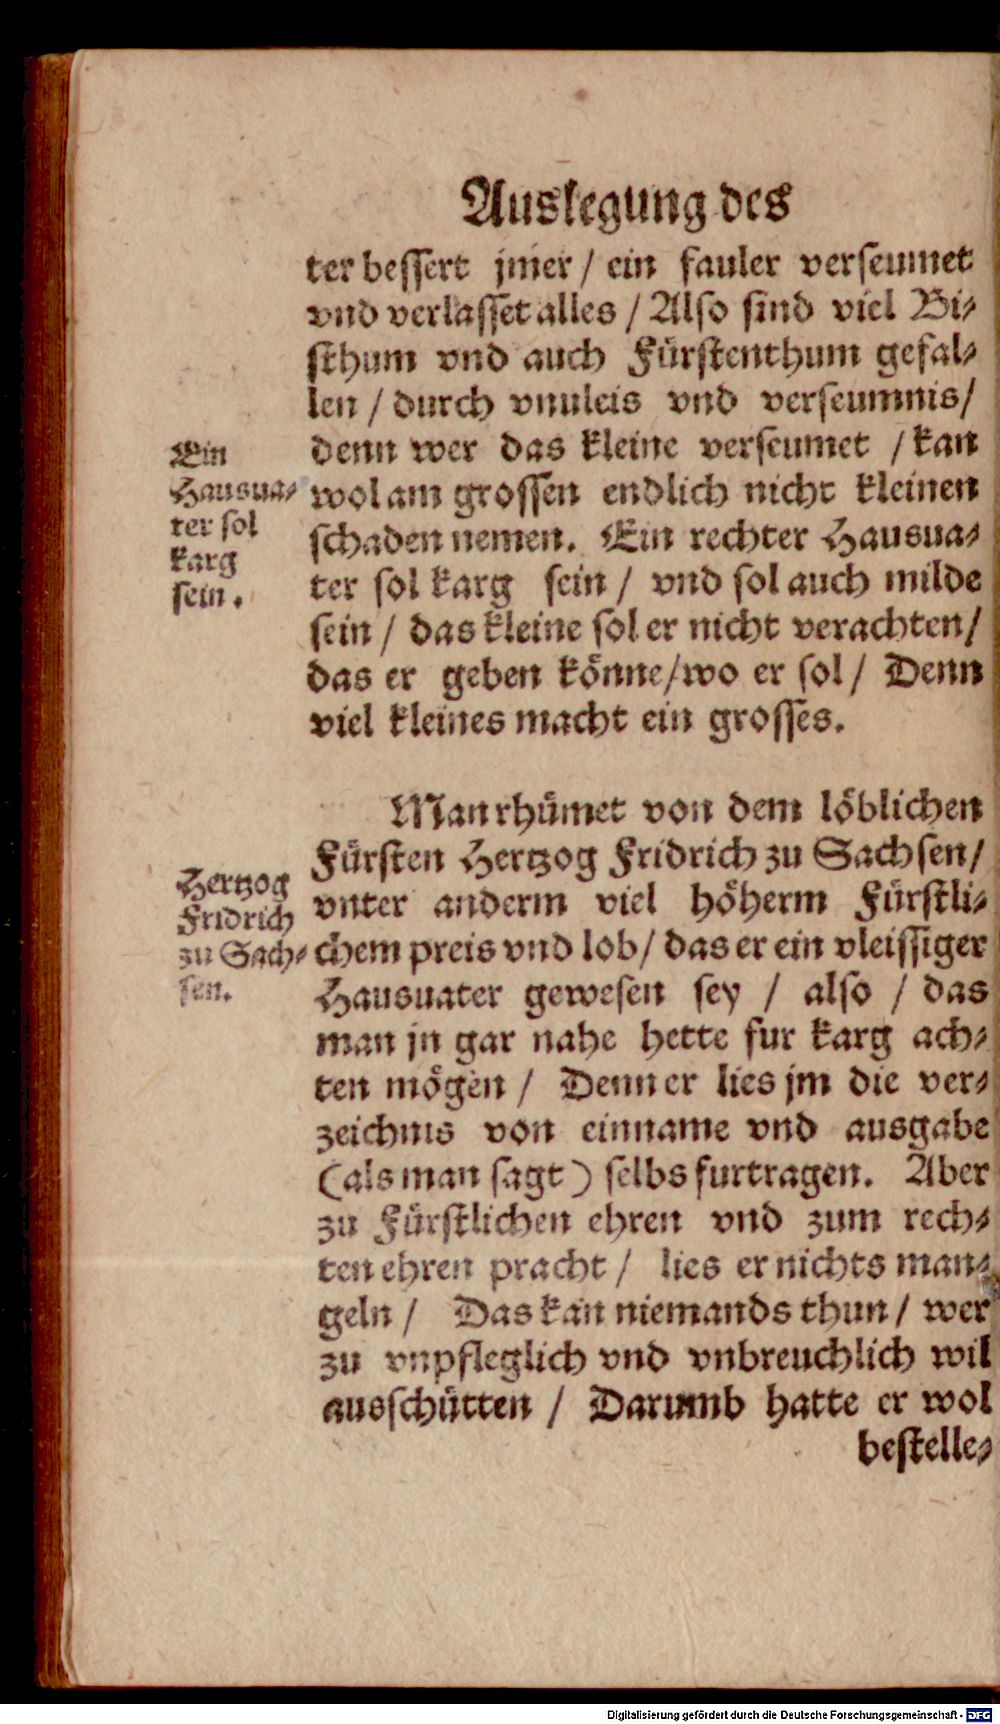 Auslegung des
ter bessert jm̃er / ein fauler verseumet
vnd verlasset alles / Also sind viel Bi-
sthum vnd auch Fürstenthum gefal-
len / durch vnuleis vnd verseumnis /
denn wer das kleine verseumet / kan
wol am grossen endlich nicht kleinen
schaden nemen. Ein rechter Hausua-
ter sol karg sein / vnd sol auch milde
sein / das kleine sol er nicht verachten /
das er geben könne / wo er sol / Denn
viel kleines macht ein grosses.
Ein
Hausua-
ter sol
karg
sein.
Man rhümet von dem löblichen
Fürsten Hertzog Fridrich zu Sachsen /
vnter anderm viel höherm Fürstli-
chem preis vnd lob / das er ein vleissiger
Hausuater gewesen sey / also / das
man jn gar nahe hette fur karg ach-
ten mögen / Denn er lies jm die ver-
zeichnis von einname vnd ausgabe
(als man sagt) selbs furtragen. Aber
zu Fürstlichen ehren vnd zum rech-
ten ehren pracht / lies er nichts man-
geln / Das kan niemands thun / wer
zu vnpfleglich vnd vnbreuchlich wil
ausschütten / Darumb hatte er wol
bestelle-
Hertzog
Fridrich
zu Sach-
sen.
Digitalisierung gefördert durch die Deutsche Forschungsgemeinschaft - DFG